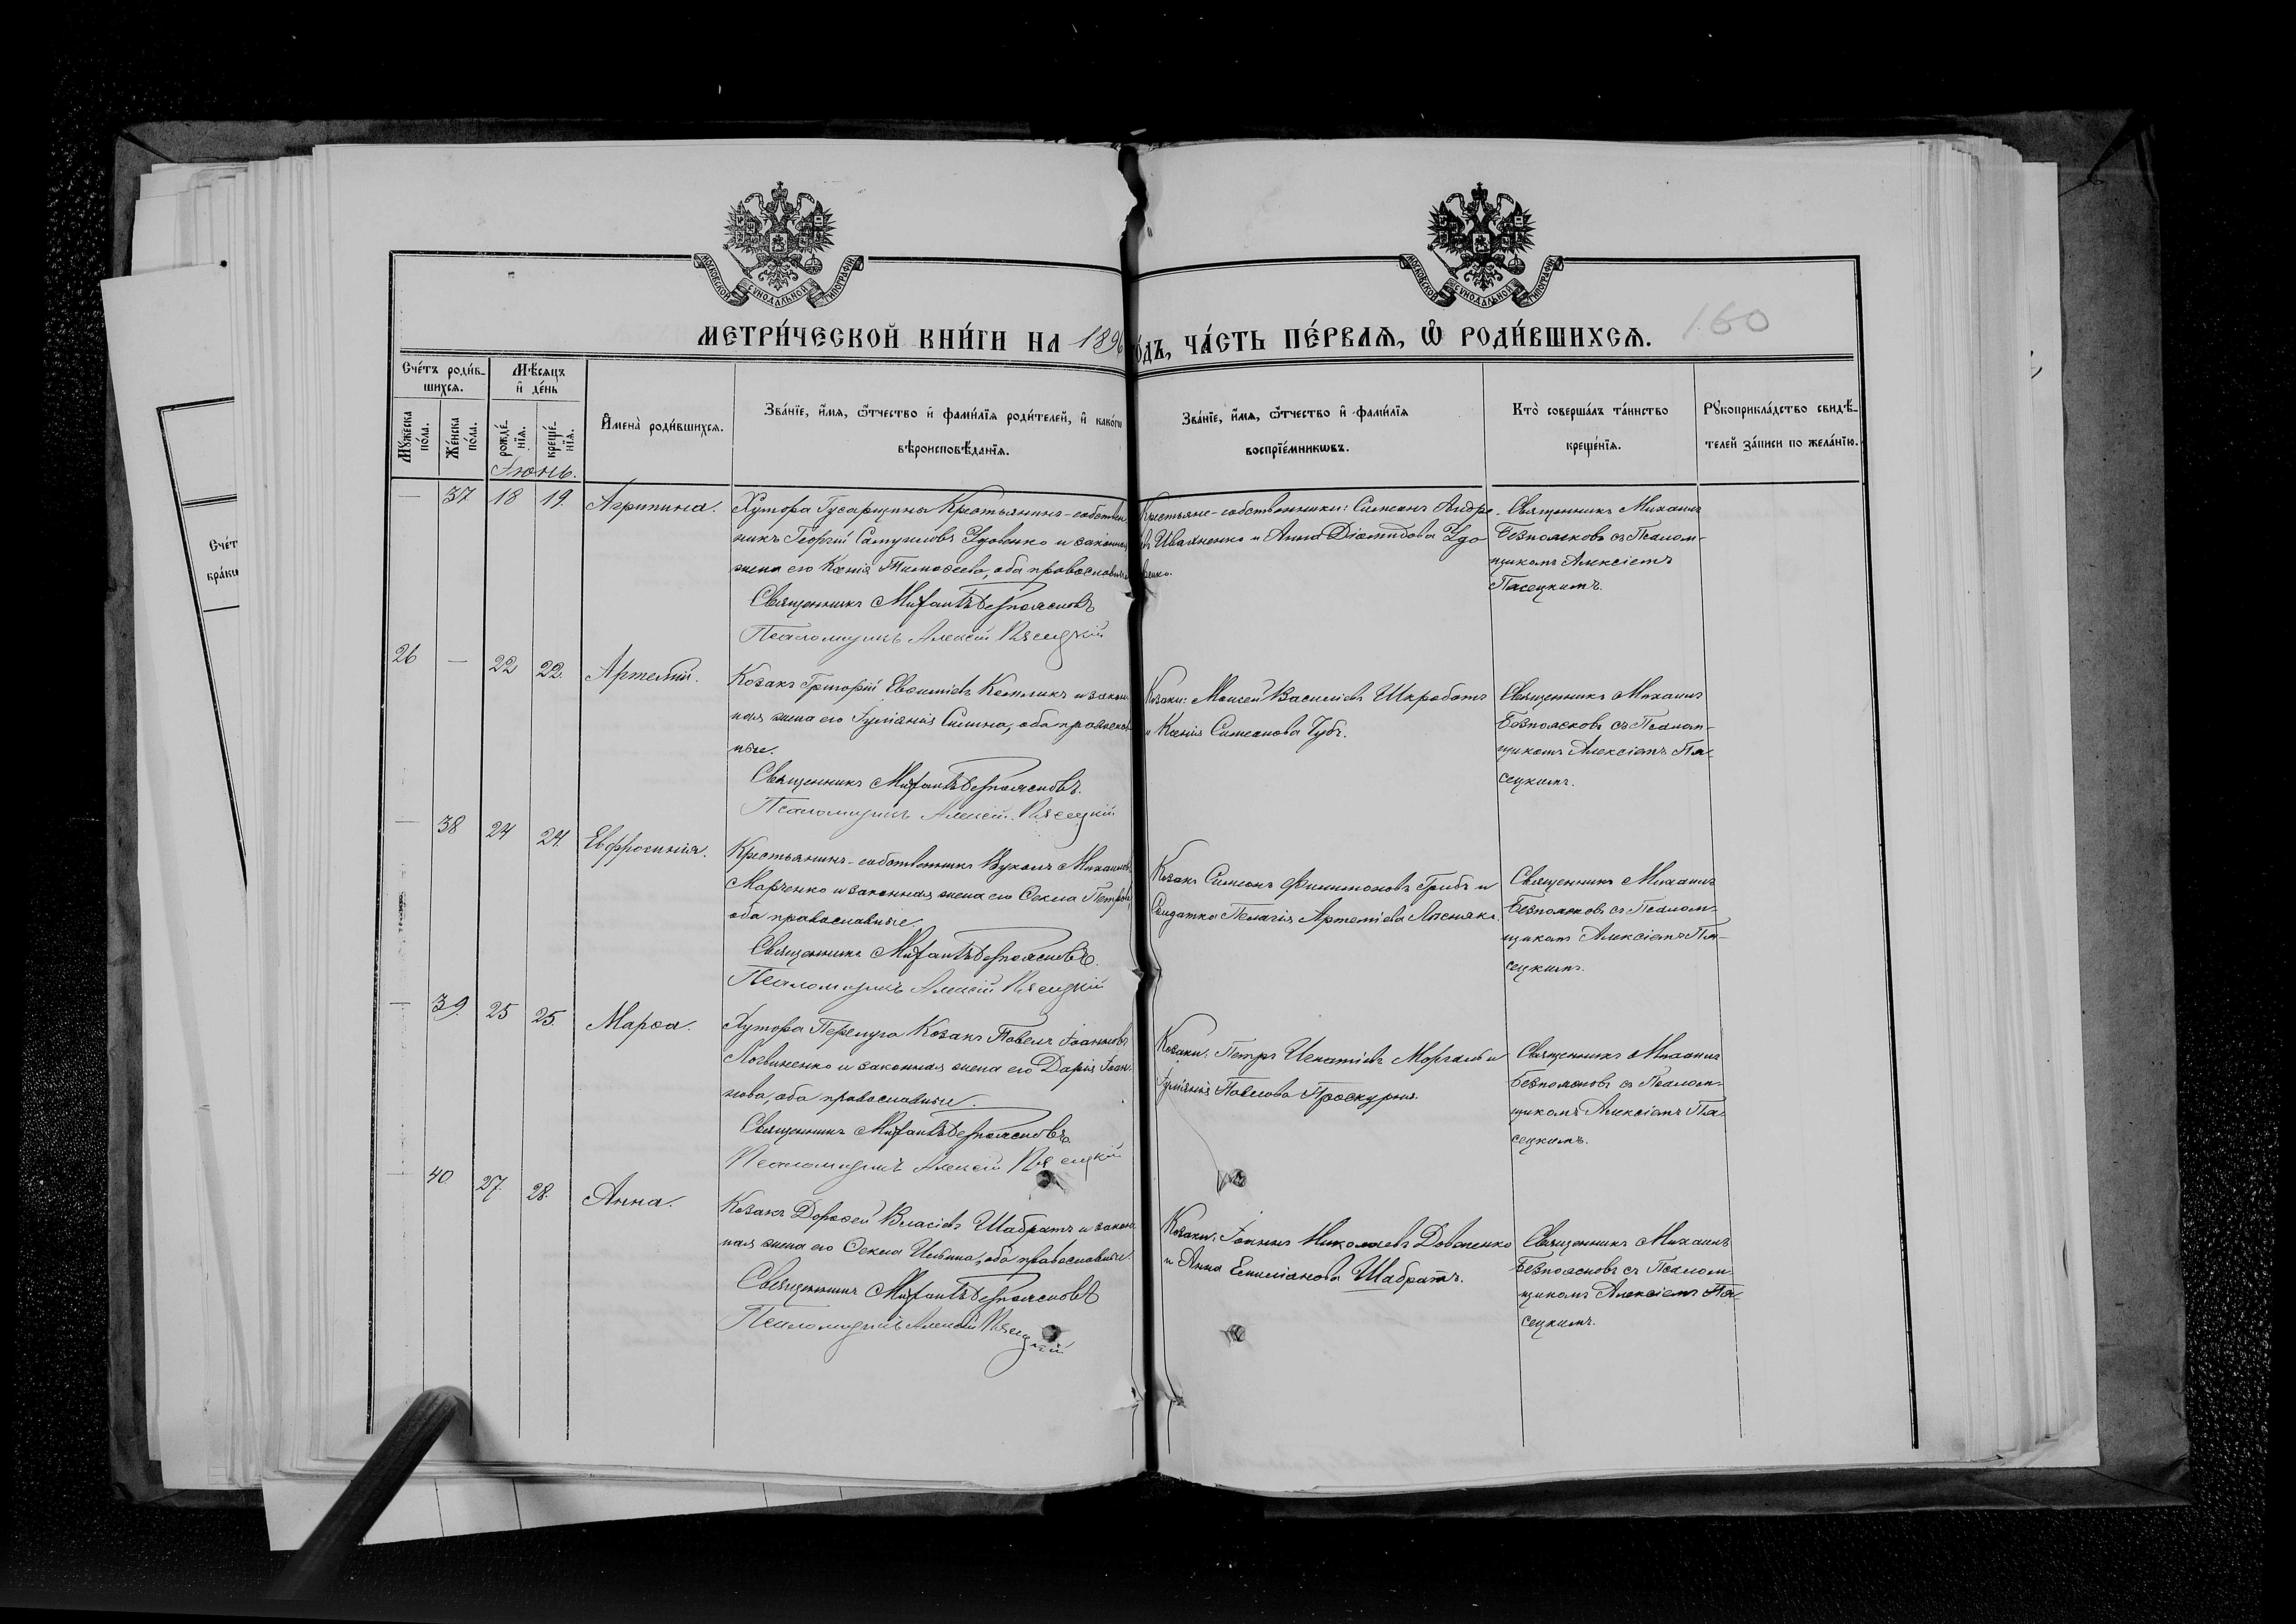 МОСКОВСКОЙ СУНОДАЛЬНОЙ ТИПОГРАФІИ
МОСКОВСКОЙ СУНОДАЛЬНОЙ ТИПОГРАФІИ
МЕТРИ́ЧЕСКОЙ КНИ́ГИ НА 1896
ѻ́дъ, ЧА́СТЬ ПЕ́РВАѦ, Ѽ РОДИ́ВШИХСѦ.
160
Сче́тъ роди́в-
шихсѧ.
Мѣ́сѧцъ
и҆ де́нь
Мꙋ́жеска
по́ла.
Же́нска
по́ла.
рожде́-
нїѧ.
креще́-
нїѧ.
И҆мена̀ роди́вшихсѧ.
Зва́нїе, и҆́мѧ, ѻ҆́тчество и҆ фами́лїѧ роди́телей, и҆ како́гѡ
вѣроисповѣ́данїѧ.
Зва́нїе, и҆́мѧ, ѻ҆́тчество и҆ фами́лїѧ
воспрїе́мникѡвъ.
Кто̀ соверша́лъ та́инство
креще́нїѧ.
Рꙋкоприкла́дство свидѣ́-
телей за́писи по жела́нїю.
Счет
краки
Іюнь.
— 37 18 19. Агрипина.
Хутора Гусарщина Крестьянинъ-собствен
никъ Георгій Самуиловъ Удовенко и законная
жена его Ксенія Тимоѳеева, оба православные
Священникъ Михаилъ Безпоясковъ
Псаломщикъ Алексій Пясецкій
Крестьяне-собственники: Симеонъ Андре-
евъ Иваненко и Анна Діомидова Удо
венко.
Священникъ Михаилъ
Безпоясковъ съ Псалом-
щикомъ Алексіемъ
Пясецкимъ.
26 — 22 22. Артемій.
Козакъ Григорій Евѳиміевъ и закон
ная жена его Іуліанія Силина, оба православ
ные.
Священникъ Михаилъ Безпоясковъ.
Псаломщикъ Алексій Пясецкій
Козаки: Моисей Василіевъ Шкработъ
и Ксенія Симеонова Чубъ.
Священникъ Михаилъ
Безпоясковъ съ Псалом-
щикомъ Алексіемъ Пя-
сецкимъ.
— 38 24 24. Евфросинія.
Крестьянинъ-собственникъ Вуколъ Михаиловъ
Марченко и законная жена его Ѳекла Петрова,
оба православные.
Священникъ Михаилъ Безпоясковъ.
Псаломщикъ Алексій Пясецкій
Козакъ Симеонъ Филимоновъ Грибъ и
Солдатка Пелагія Артеміева Лисняка.
Священникъ Михаилъ
Безпоясковъ съ Псалом-
щикомъ Алексіемъ Пя-
сецкимъ.
— 39. 25 25. Марѳа.
Хутора Козакъ Павелъ Іоанновъ
Логвиненко и законная жена его Дарія Іоан
нова, оба православные.
Священникъ Михаилъ Безпоясковъ
Псаломщикъ Алексій Пясецкій
Козаки: Петръ Игнатіевъ и
Іуліанія Павлова Проскурня.
Священникъ Михаилъ
Безпоясковъ съ Псалом-
щикомъ Алексіемъ Пя-
сецкимъ.
— 40. 27. 28. Анна.
Козакъ Дороѳей Власіевъ Шабратъ и закон
ная жена его Ѳекла Ильина, оба православные.
Священникъ Михаилъ Безпоясковъ
Псаломщикъ Алексій Пясецкій
Козаки: Іоаннъ Николаевъ Довженко
и Анна Емиліанова Шабратъ.
Священникъ Михаилъ
Безпоясковъ съ Псалом
щикомъ Алексіемъ Пя-
сецкимъ.